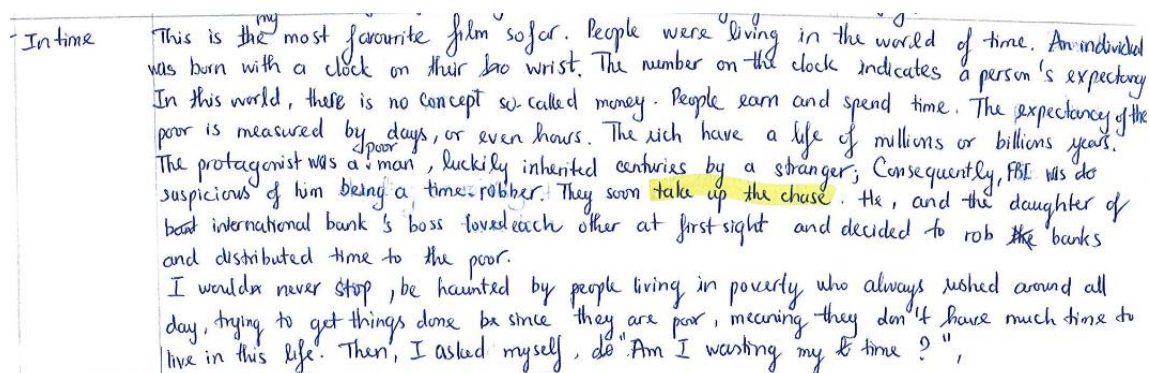 In time This is the my most favourite film so far. People were living in the world of time. An individual
was born with a clock on their wrist. The number on the clock indicates a person's expectancy
In this world, there is no concept so-called money. People earn and spend time. The expectancy of the
poor is measured by days, or even hours. The rich have a life of millions or billions years.
The protagonist was a poor man, luckily inherited centuries by a stranger; Consequently, FBI was do
suspicious of him being a time-robber. They soon take up the chase. He, and the daughter of
international bank's boss loved each other at first sight and decided to rob the banks
and distributed time to the poor.
I would never stop, be haunted by people living in poverty who always rushed around all
day, trying to get things done since they are poor, meaning they don't have much time to
live in this life. Then, I asked myself, do "Am I wasting my time?",